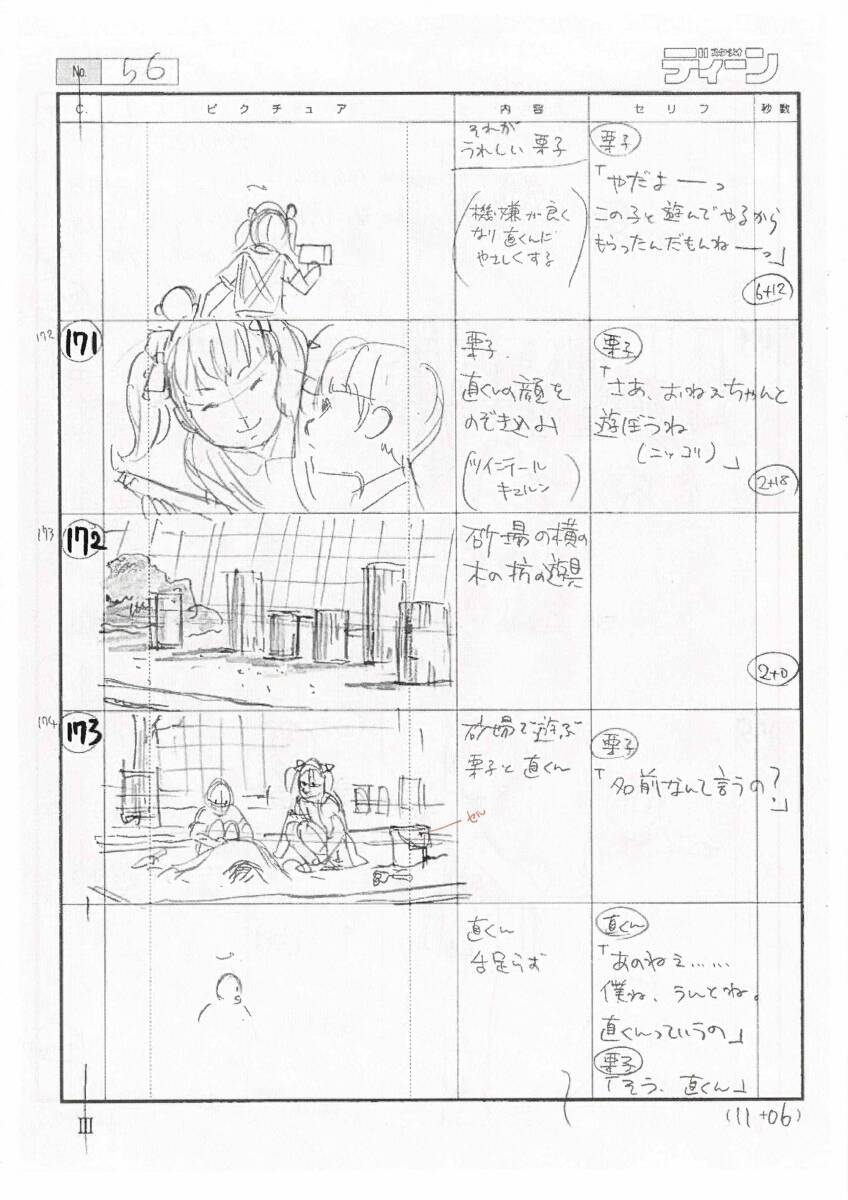 No. 56
ディーン
C. ピクチュア 内容 セリフ 秒数
それが
うれしい 栗子
(機嫌が良く
なり直くんに
やさしくする)
栗子
「やだよーーっ
この子と遊んでやるから
もらったんだもんねーーっ」
6+12
172
171
栗子
直くんの顔を
のぞきこみ
(ツインテール
キュルン)
栗子
「さあ、おねえちゃんと
遊ぼうね
(ニッコリ)」
2+18
173
172
砂場の横の
木の杭の遊具
2+0
174
173
セル
砂場で遊ぶ
栗子と直くん
栗子
「名前なんて言うの?」
直くん
舌足らず
直くん
「あのねえ……
僕ね、うんとね。
直くんっていうの」
栗子
「そう、直くん」
(11+06)
III